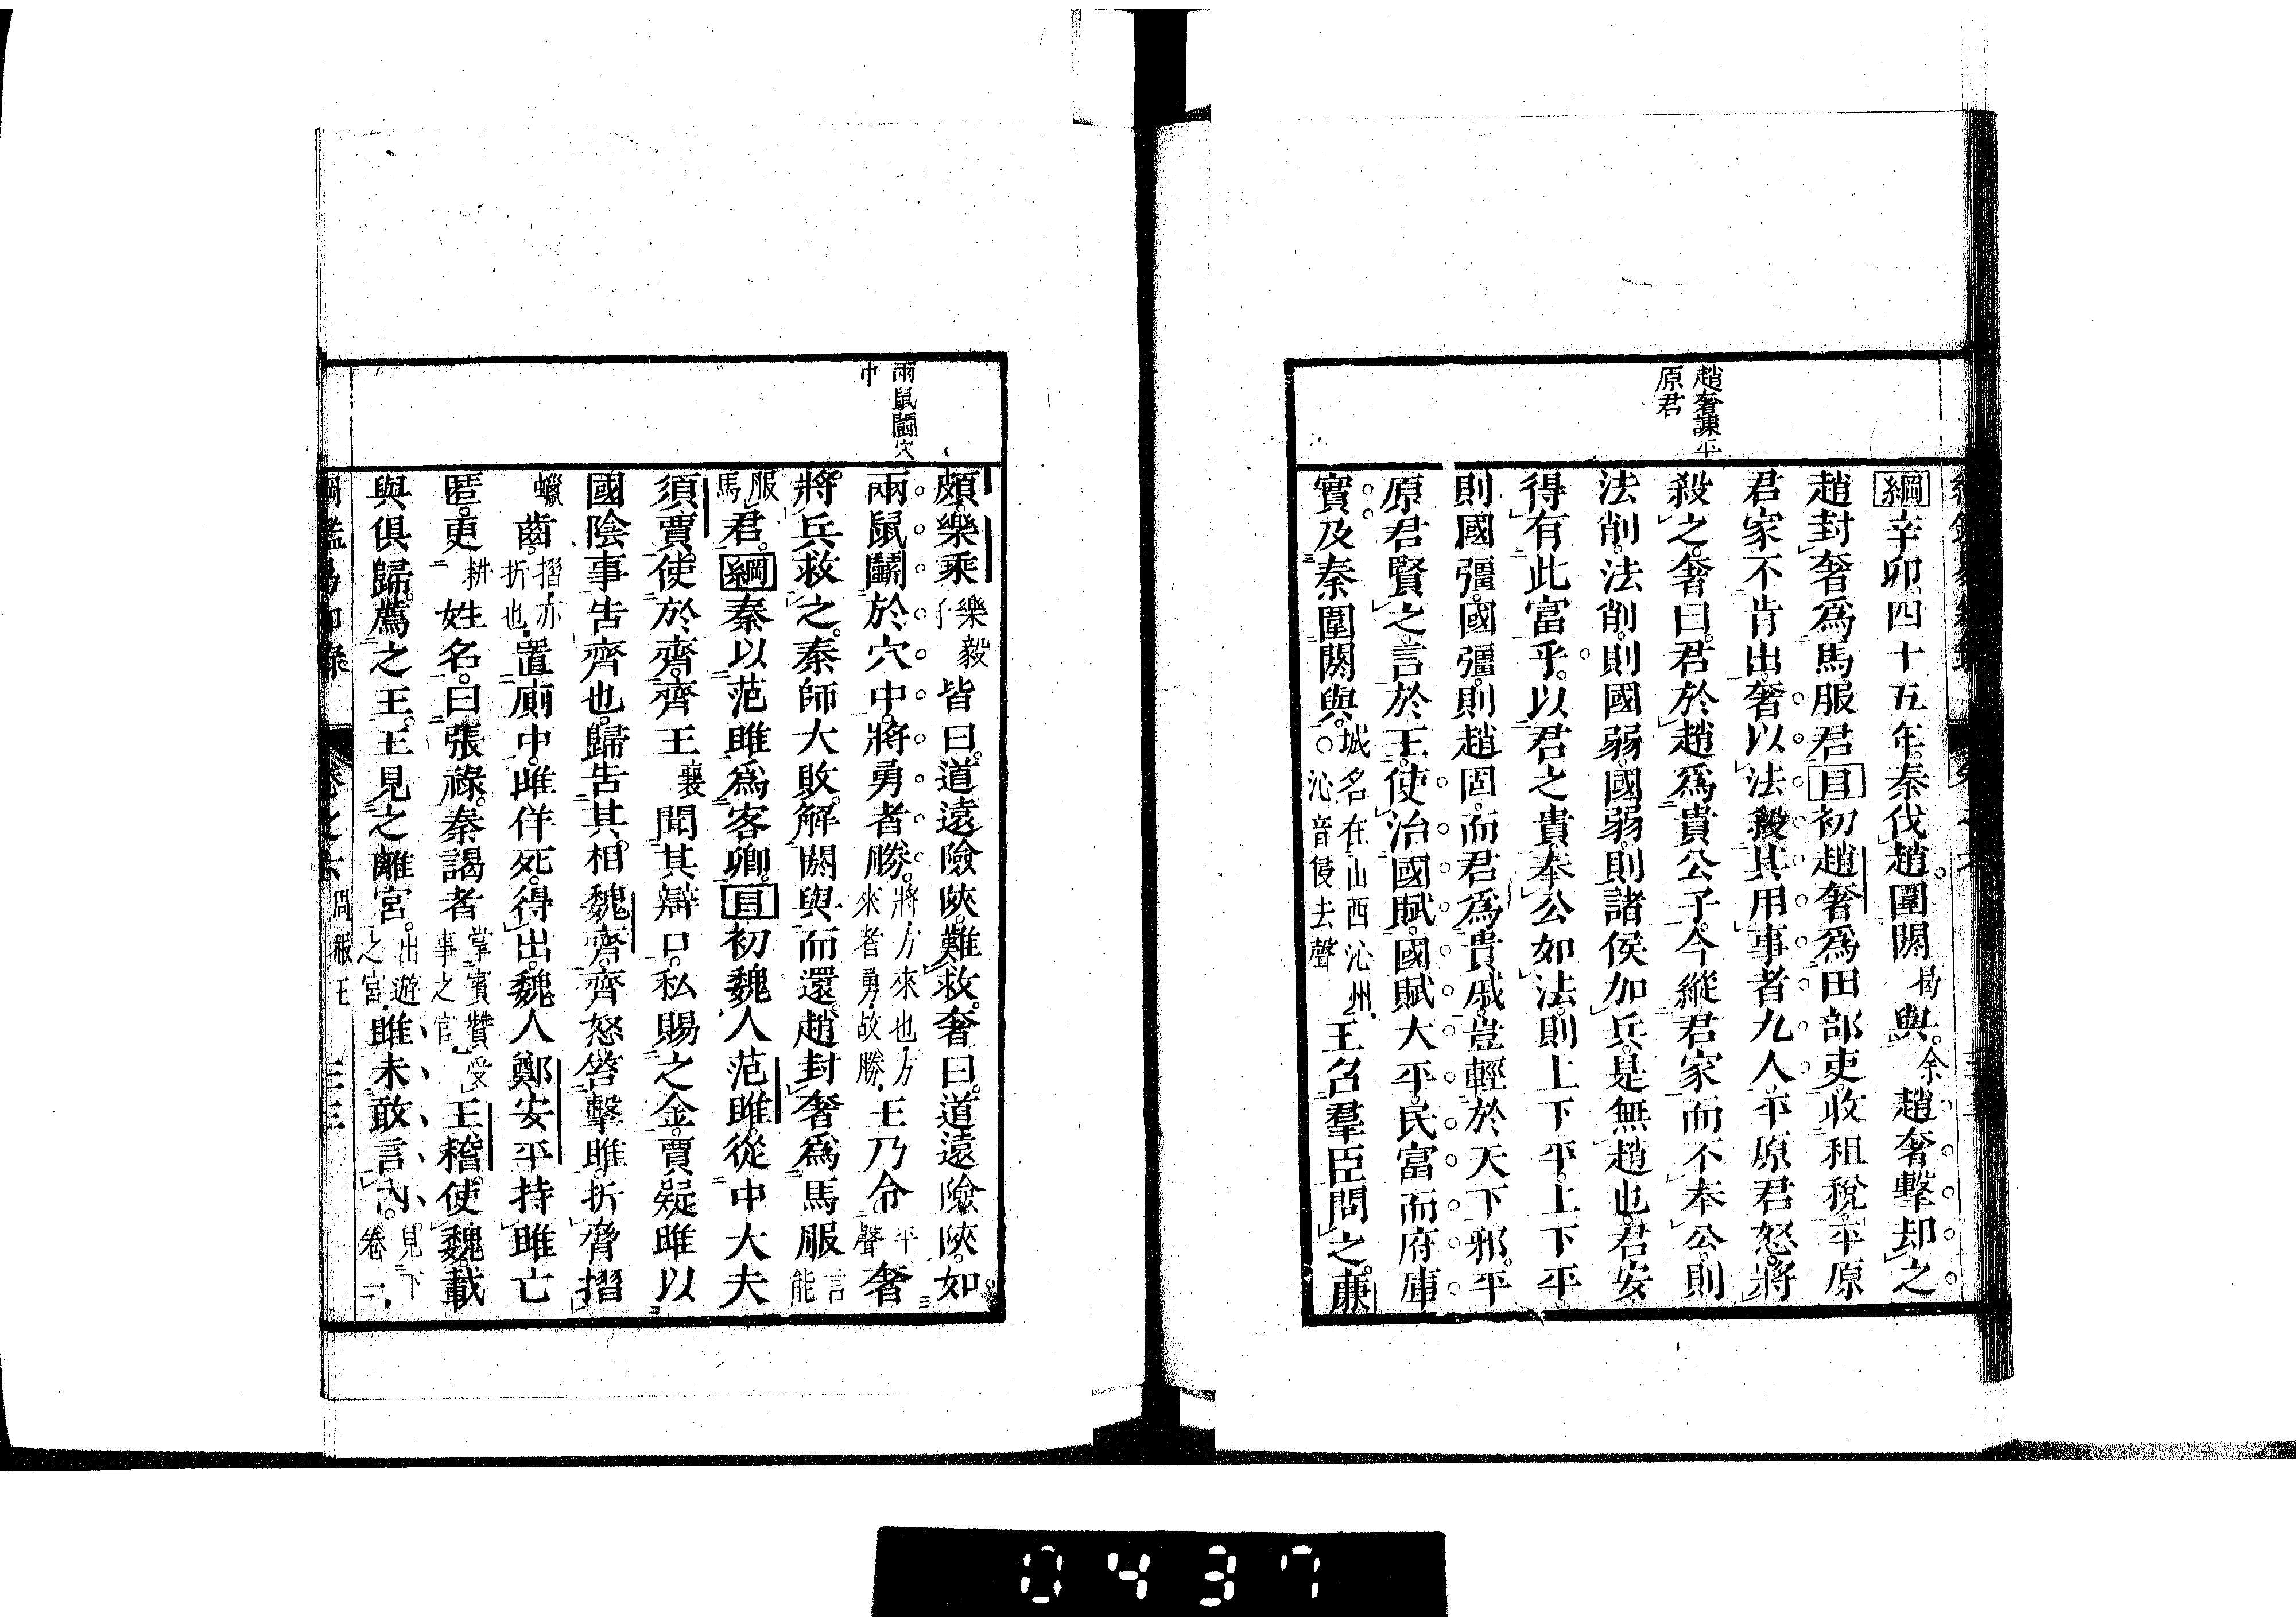 趙奢諫平
原君
綱辛卯四十五年。秦伐趙。圍閼曷與。余趙奢擊却之
趙封奢爲馬服君目初趙奢爲田部吏。收租稅。平原
君家不肯出。奢以法殺其用事者九人。平原君怒。將
殺之。奢曰。君於趙爲貴公子。今縱君家而不奉公。則
法削。法削。則國弱。國弱。則諸侯加兵。是無趙也。君安
得有此富乎。以君之貴。奉公如法。則上下平。上下平
則國彊。國彊。則趙固。而君爲貴戚。豈輕於天下邪。平
原君賢之。言於王。使治國賦。國賦大平。民富而府庫
實。及秦圍閼與。城名在山西沁州。○沁音侵去聲王召羣臣問之。廉
兩鼠鬭穴
中
頗。樂乘樂毅子皆曰。道遠險陜。難救。奢曰。道遠險陜。如
兩鼠鬭於穴中。將勇者勝。將方來也。方來者勇。故勝。王乃令平聲奢
將兵救之。秦師大敗。解閼與而還。趙封奢爲馬服言能
服馬君。綱秦以范雎爲客卿。目初魏人范雎。從中大夫
須賈使於齊。齊王襄聞其辯口。私賜之金。賈疑雎以
國陰事告齊也。歸告其相魏齊。齊怒。笞擊雎。折脅摺
蠟齒。摺亦折也。置廁中。雎佯死。得出。魏人鄭安平持雎亡
匿。更耕姓名。曰張祿。秦謁者掌賓贊受事之官。王稽使魏。載
與俱歸。薦之王。王見之離宮。出遊之宮。雎未敢言內。見下卷二。
綱鑑易知錄 卷之六 周赧王 三三
0437